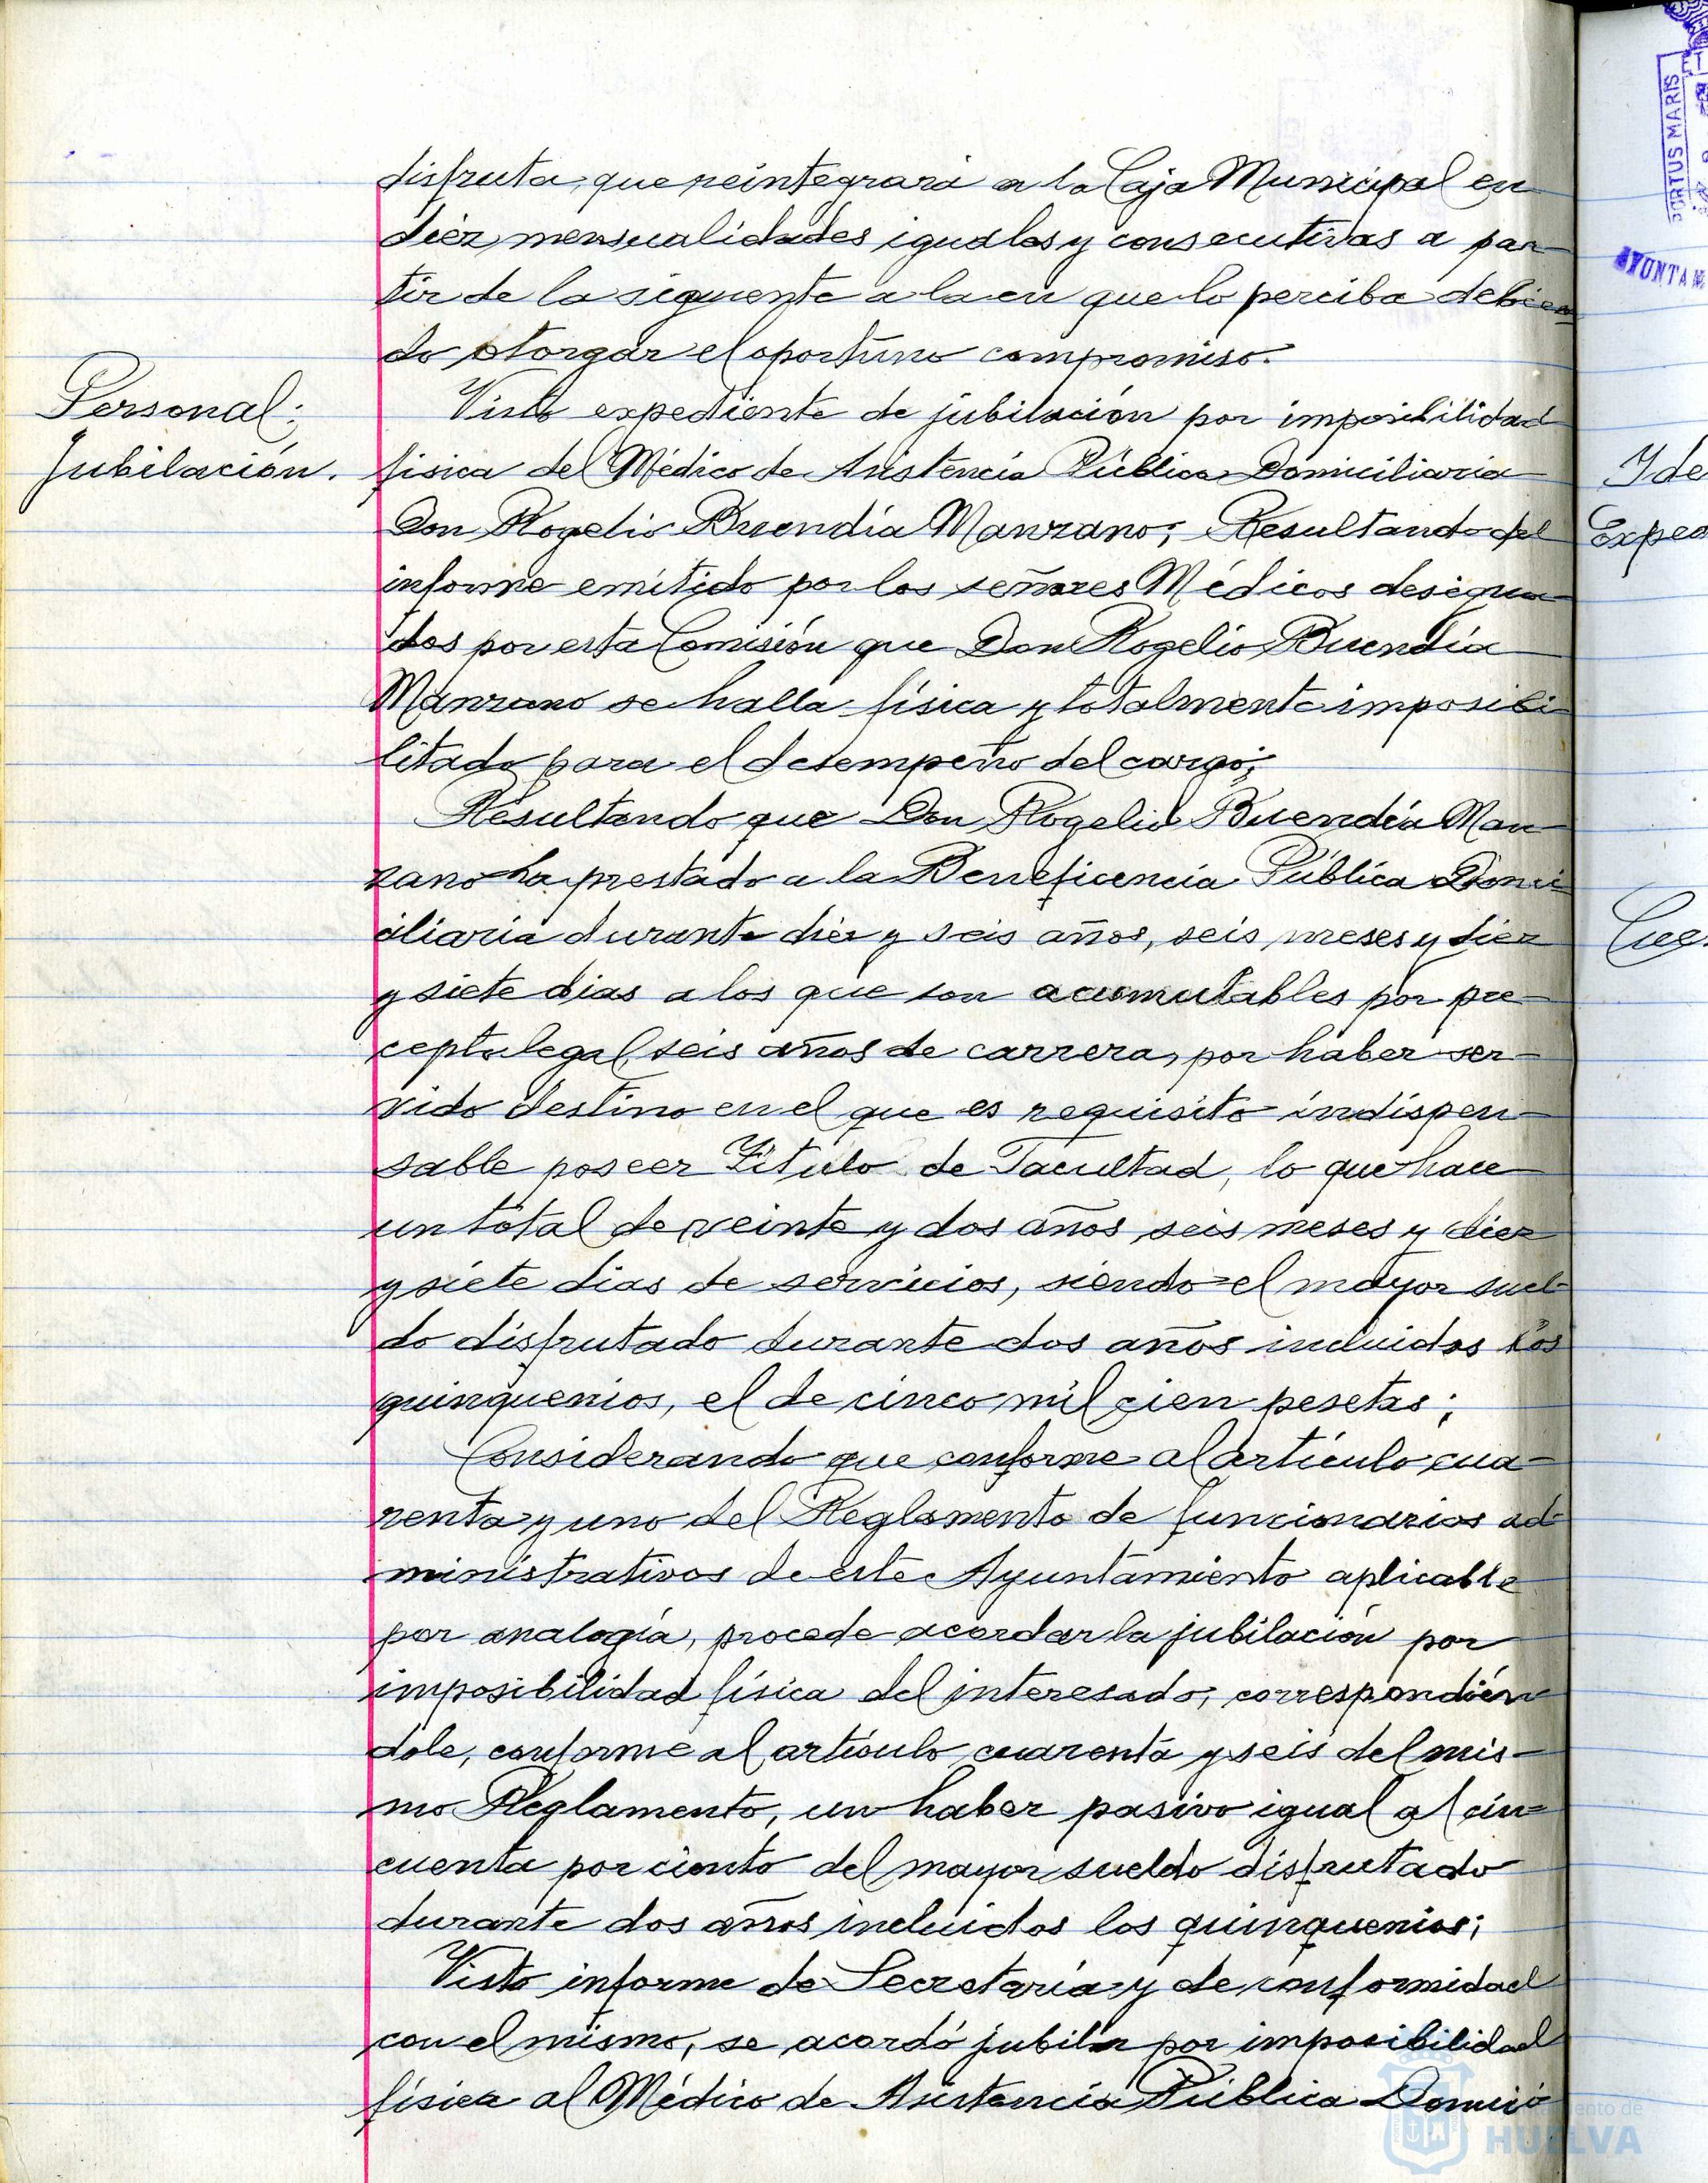 disfruta, que reintegrará a la Caja Municipal en
diez mensualidades iguales y consecutivas a par-
tir de la siguiente a la en que lo perciba debien
do otorgar el oportuno compromiso.
Personal:
Jubilación.
Visto expediente de jubilación por imposibilidad
física del Médico de Asistencia Pública Domiciliaria
Don Rogelio Buendía Manzano; Resultando del
informe emitido por los señores Médicos designa-
dos por esta Comisión que Don Rogelio Buendía
Manzano se halla física y totalmente imposibi-
litado para el desempeño del cargo;
Resultando que Don Rogelio Buendía Man-
zano ha prestado a la Beneficencia Pública Domi
ciliaria durante diez y seis años, seis meses y diez
y siete dias a los que son acumulables por pre-
cepto legal, seis años de carrera, por haber ser-
vido destino en el que es requisito indispen-
sable poseer Título de Facultad, lo que hace
un total de veinte y dos años seis meses y diez
y siete dias de servicios, siendo el mayor suel-
do disfrutado durante dos años incluidos los
quinquenios, el de cinco mil cien pesetas;
Considerando que conforme al artículo cua-
renta y uno del Reglamento de funcionarios ad-
ministrativos de este Ayuntamiento aplicable
por analogía, procede acordar la jubilación por
imposibilidad física del interesado, correspondién
dole, conforme al artículo cuarenta y seis del mis-
mo Reglamento, un haber pasivo igual al cin-
cuenta por ciento del mayor sueldo disfrutado
durante dos años incluidos los quinquenios;
Visto informe de Secretaría y de conformidad
con el mismo, se acordó jubilar por imposibilidad
física al Médico de Asistencia Pública Domici
PORTUS MARIS
AYUNTAM
Yde
Exped
ento de
HUELVA